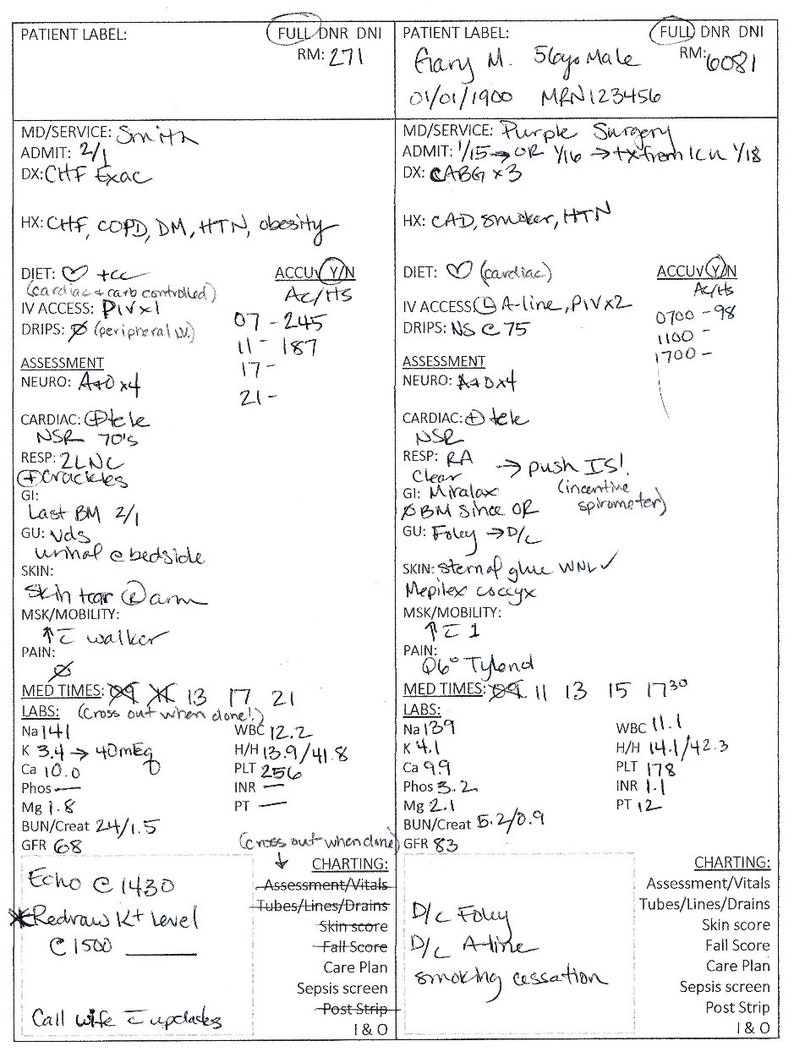 PATIENT LABEL: FULL DNR DNI
RM: 271
MD/SERVICE: Smith
ADMIT: 2/1
DX: CHF Exac
HX: CHF, COPD, DM, HTN, obesity
DIET: ♡ + cc
(cardiac + carb controlled)
ACCU✓ Y/N
Ac/Hs
IV ACCESS: PIV x1
07 - 245
DRIPS: ∅ (peripheral I.V.)
11 - 187
ASSESSMENT
17 -
NEURO: A+O x4
21 -
CARDIAC: ⊕ tele
NSR 70's
RESP: 2L NC
⊕ crackles
GI:
Last BM 2/1
GU: Vds
urinal @ bedside
SKIN:
Skin tear Ⓡ arm
MSK/MOBILITY:
↑ c̄ walker
PAIN:
∅
MED TIMES: 09 11 13 17 21
LABS: (cross out when done!)
Na 141 WBC 12.2
K 3.4 → 40mEq H/H 13.9/41.8
Ca 10.0 PLT 256
Phos — INR —
Mg 1.8 PT —
BUN/Creat 24/1.5
GFR 68
(cross out when done)
↓
CHARTING:
Assessment/Vitals
Tubes/Lines/Drains
Skin score
Fall Score
Care Plan
Sepsis screen
Post Strip
I & O
Echo @ 1430
* Redraw K+ level
@ 1500 ______
Call wife c̄ updates
PATIENT LABEL: FULL DNR DNI
RM: 6081
Gary M. 56yo Male
01/01/1900 MRN123456
MD/SERVICE: Purple Surgery
ADMIT: 1/15 → OR 1/16 → tx from ICU 1/18
DX: CABG x3
HX: CAD, smoker, HTN
DIET: ♡ (cardiac)
ACCU✓ Y/N
Ac/Hs
IV ACCESS: Ⓛ A-line, PIV x2
0700 - 98
DRIPS: NS @ 75
1100 -
1700 -
ASSESSMENT
NEURO: A+O x4
CARDIAC: ⊕ tele
NSR
RESP: RA
Clear → push IS!
(incentive spirometer)
GI: Miralax
∅ BM since OR
GU: Foley → D/c
SKIN: sternal glue WNL ✓
Mepilex coccyx
MSK/MOBILITY:
↑ c̄ 1
PAIN:
Q6° Tylenol
MED TIMES: 09 11 13 15 17³⁰
LABS:
Na 139 WBC 11.1
K 4.1 H/H 14.1/42.3
Ca 9.9 PLT 178
Phos 3.2 INR 1.1
Mg 2.1 PT 12
BUN/Creat 5.2/0.9
GFR 83
CHARTING:
Assessment/Vitals
Tubes/Lines/Drains
Skin score
Fall Score
Care Plan
Sepsis screen
Post Strip
I & O
D/c Foley
D/c A-line
smoking cessation